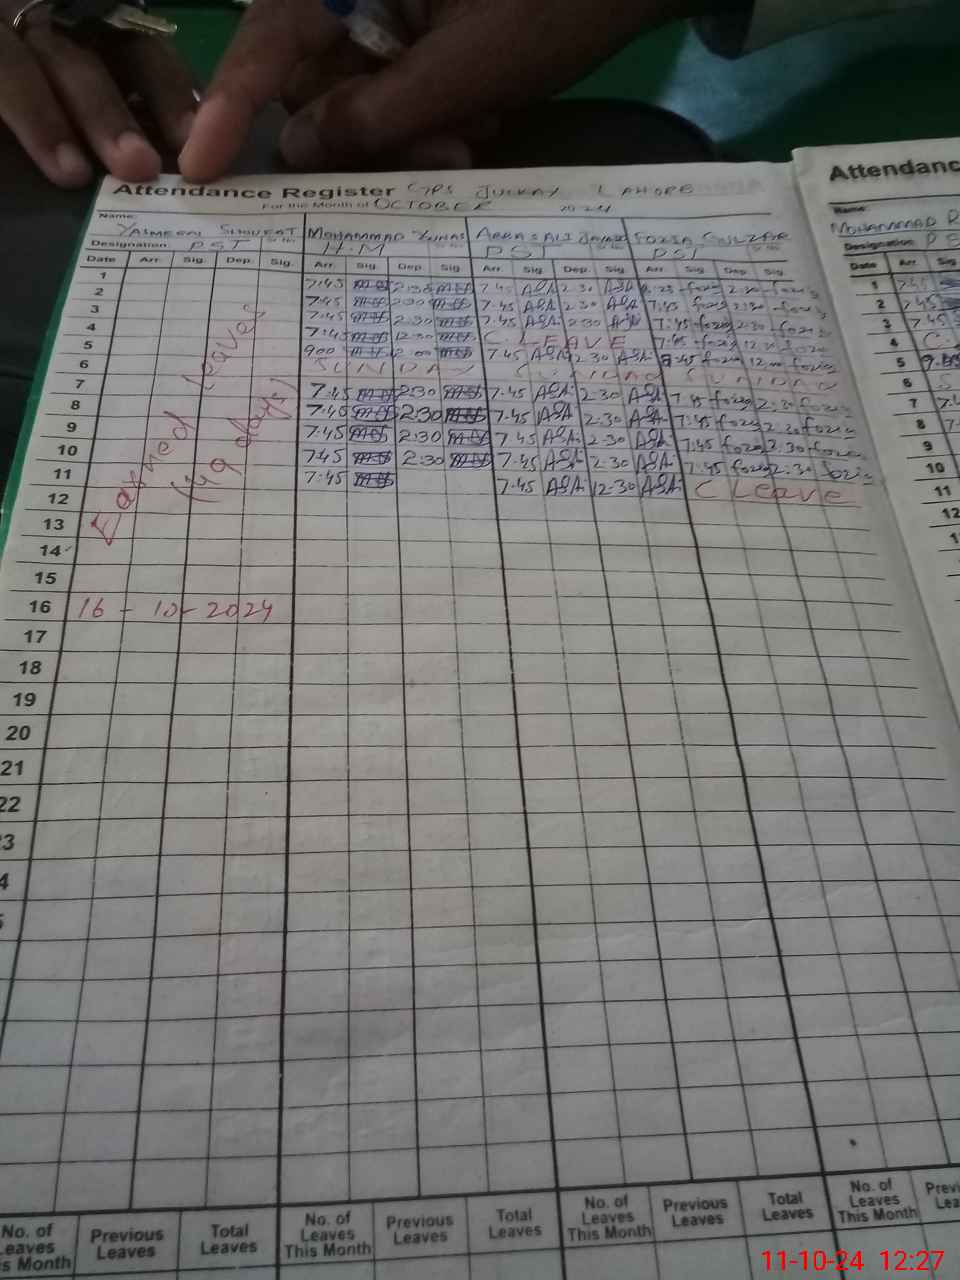 Attendance Register GPS JULKAY LAHORE
For the Month of OCTOBER 2024
Name: YASMEEN SHOUKAT MOHAMMAD YUNAS ABBAS ALI FOZIA GULZAR
Designation PST H.M PST PST
Date Arr. Sig. Dep. Sig. Arr. Sig. Dep. Sig. Arr. Sig. Dep. Sig. Arr. Sig. Dep. Sig.
Earned leave
(49 days)
1 7:45 2:30 7:45 ASA 2:30 ASA 8:25 fozia 2:30 fozia
2 7:45 2:30 7:45 ASA 2:30 ASA 7:45 fozia 2:30 fozia
3 7:45 2:30 7:45 ASA 2:30 ASA 7:45 fozia 2:30 fozia
4 7:45 12:00 C. LEAVE 7:45 fozia 12:00 fozia
5 9:00 12:00 7:45 ASA 2:30 ASA 7:45 fozia 12:00 fozia
6 SUNDAY SUNDAY SUNDAY
7 7:45 2:30 7:45 ASA 2:30 ASA 7:45 fozia 2:30 fozia
8 7:45 2:30 7:45 ASA 2:30 ASA 7:45 fozia 2:30 fozia
9 7:45 2:30 7:45 ASA 2:30 ASA 7:45 fozia 2:30 fozia
10 7:45 2:30 7:45 ASA 2:30 ASA 7:45 fozia 2:30 fozia
11 7:45 7:45 ASA 12:30 ASA C Leave
12
13
14
15
16 16-10-2024
17
18
19
20
21
22
3
4
5
No. of Leaves This Month Previous Leaves Total Leaves No. of Leaves This Month Previous Leaves Total Leaves No. of Leaves This Month Previous Leaves Total Leaves No. of Leaves This Month
Attendanc
Name: MOHAMMAD
Designation
Date Arr. Sig.
1 7:45
2 7:45
3 7:45
4 C.
5
6 S
7 7:4
8 7-
9
10
11
12
11-10-24 12:27